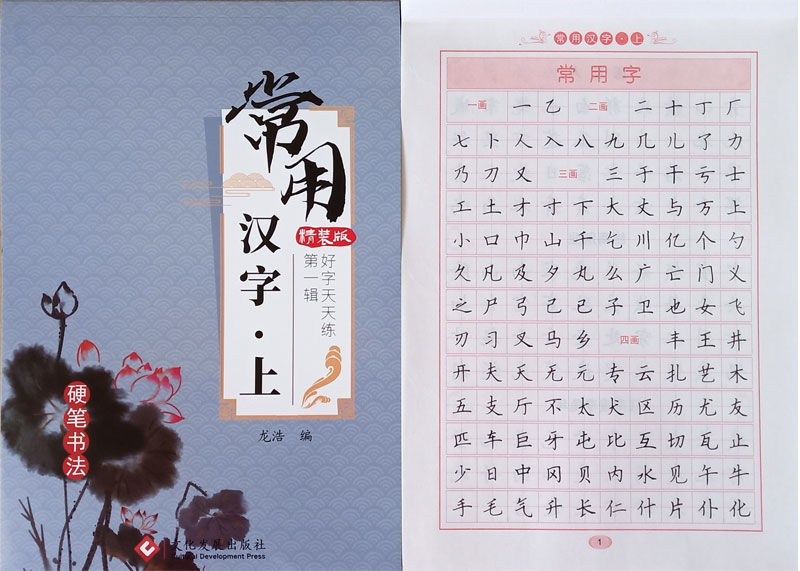 常用
汉字·上
精装版
好字天天练
第一辑
硬笔书法
龙浩 编
文化发展出版社
Cultural Development Press
常用汉字·上
常用字
一画 一 乙 二画 二 十 丁 厂
七 卜 人 入 八 九 几 儿 了 力
乃 刀 又 三画 三 于 干 亏 士
工 土 才 寸 下 大 丈 与 万 上
小 口 巾 山 千 乞 川 亿 个 勺
久 凡 及 夕 丸 么 广 亡 门 义
之 尸 弓 己 已 子 卫 也 女 飞
刃 习 叉 马 乡 四画 丰 王 井
开 夫 天 无 元 专 云 扎 艺 木
五 支 厅 不 太 犬 区 历 尤 友
匹 车 巨 牙 屯 比 互 切 瓦 止
少 日 中 冈 贝 内 水 见 午 牛
手 毛 气 升 长 仁 什 片 仆 化
1